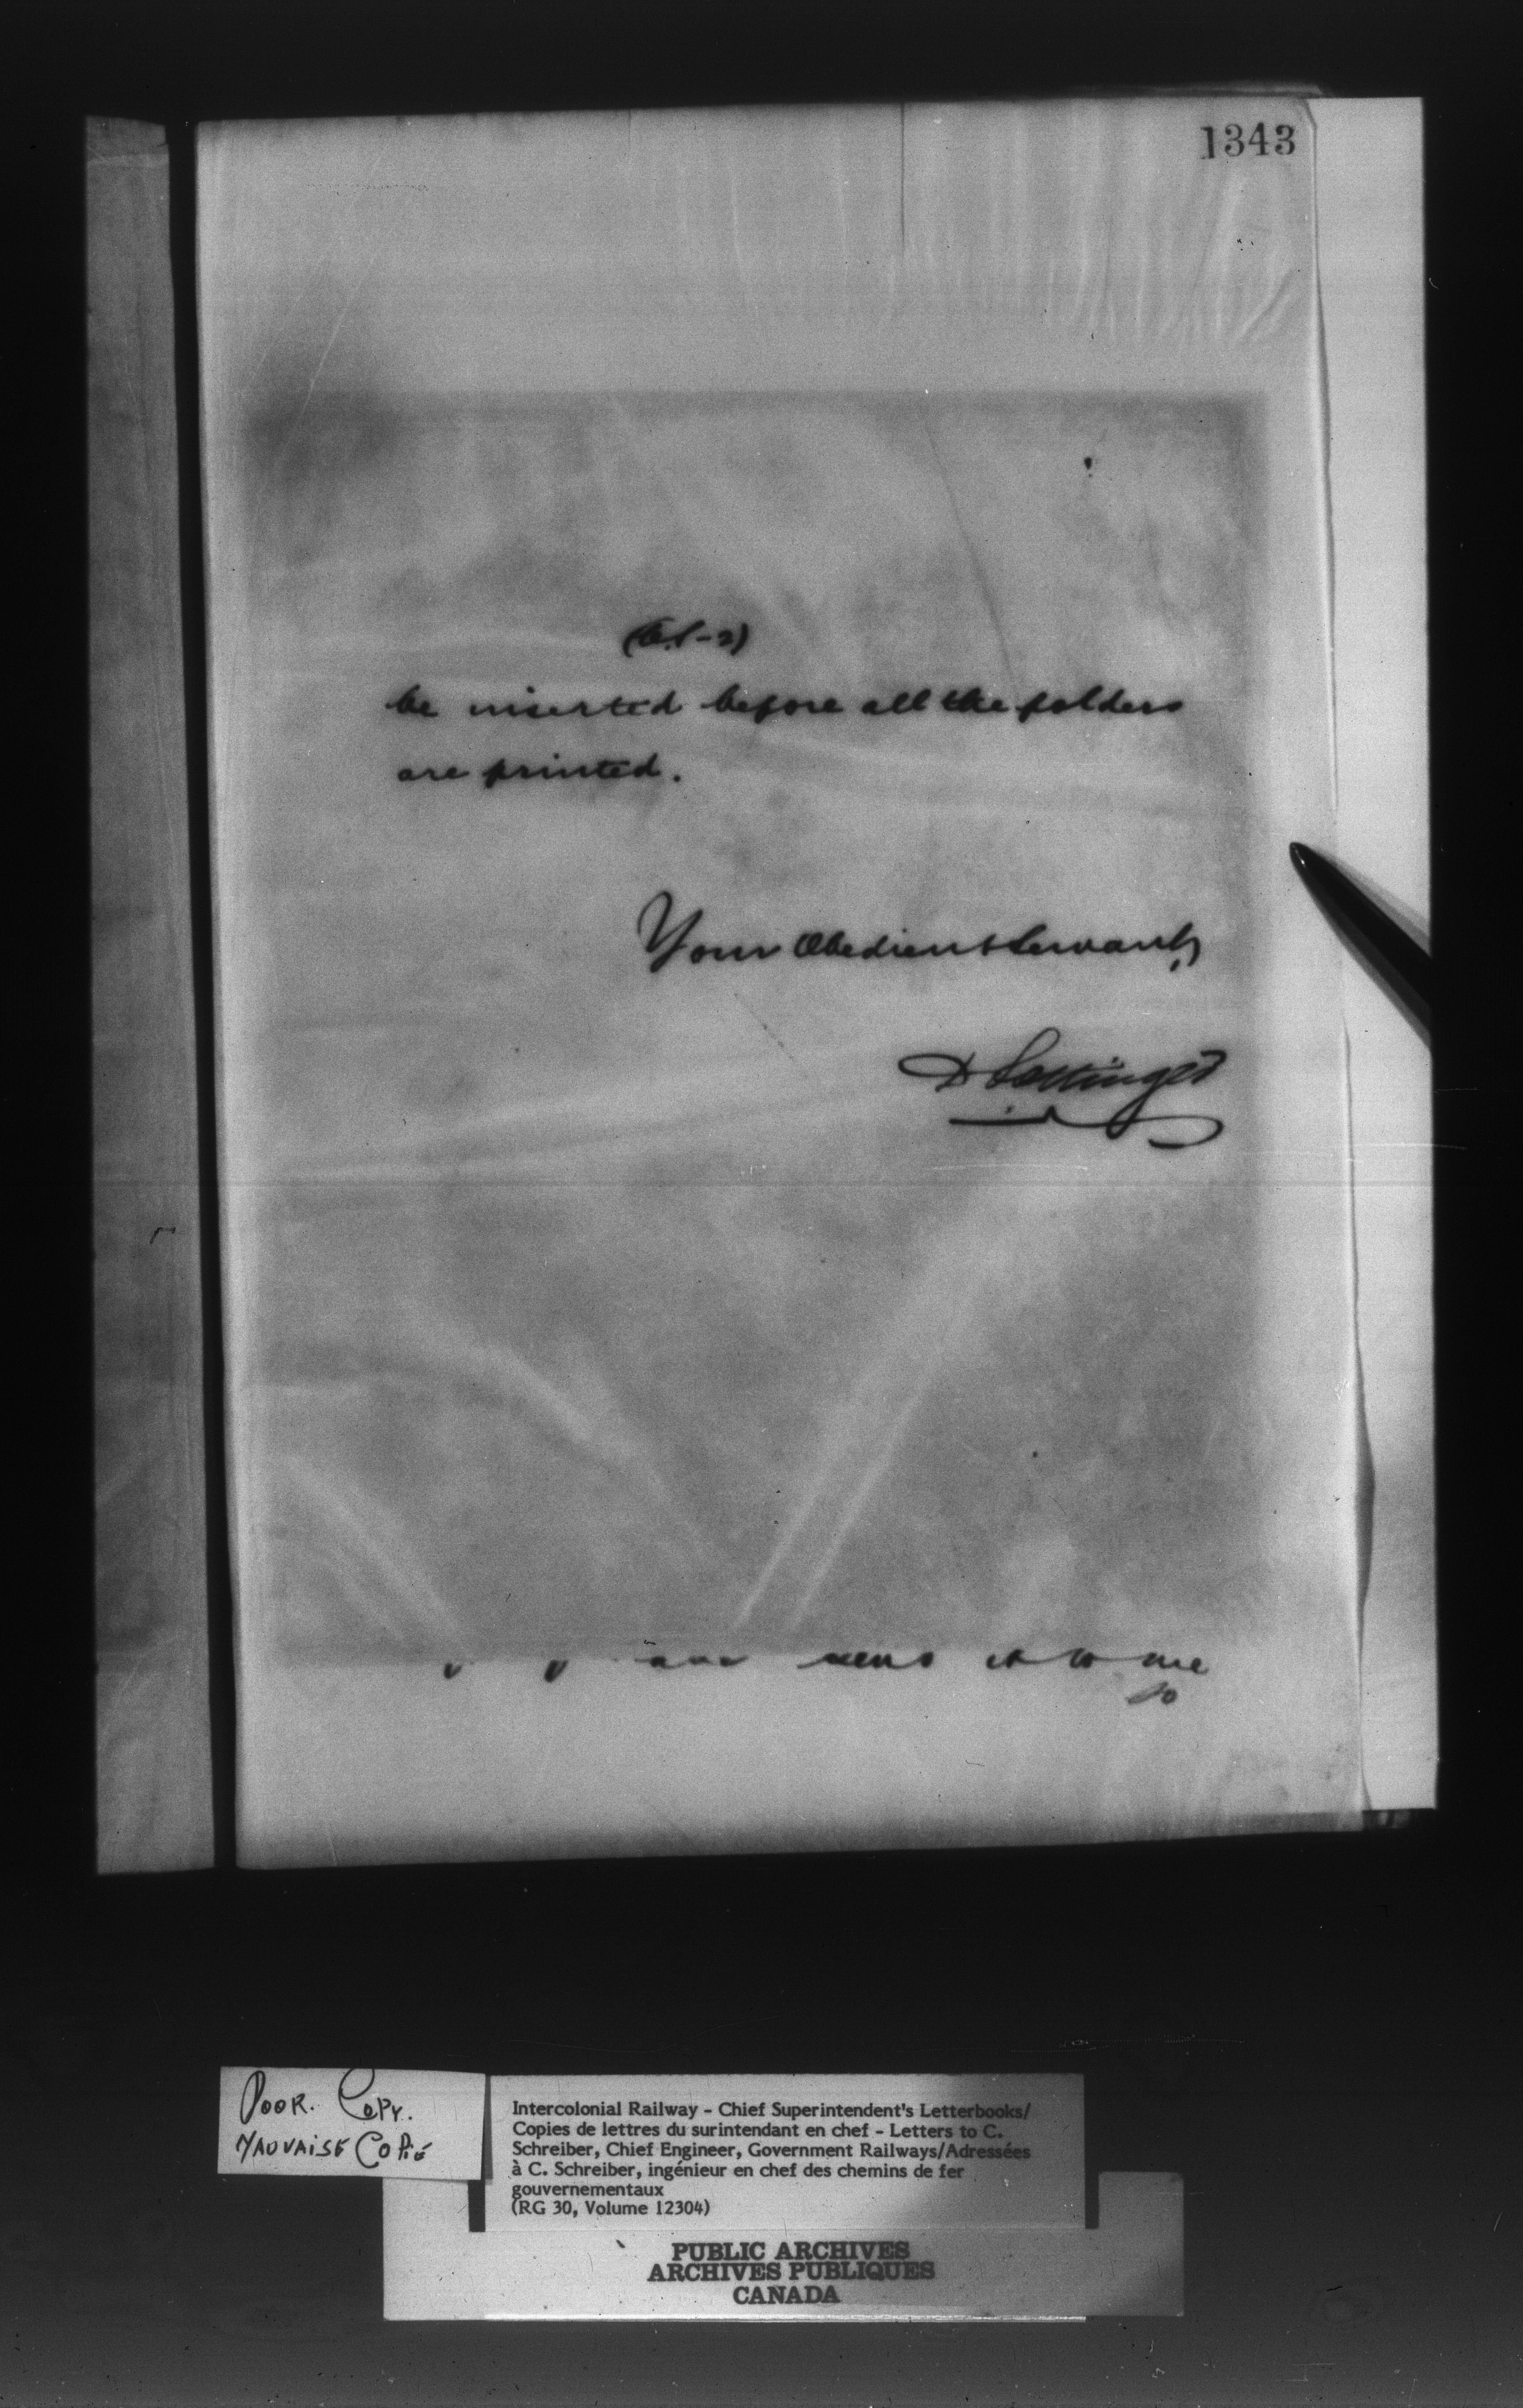 1343
be inserted before all the folders
are printed.
Your Obedient Servant,
D Pottinger
and send it to me
Poor. Copy.
Mauvaise Copie
Intercolonial Railway - Chief Superintendent's Letterbooks/
Copies de lettres du surintendant en chef - Letters to C.
Schreiber, Chief Engineer, Government Railways/Adressées
à C. Schreiber, ingénieur en chef des chemins de fer
gouvernementaux
(RG 30, Volume 12304)
PUBLIC ARCHIVES
ARCHIVES PUBLIQUES
CANADA